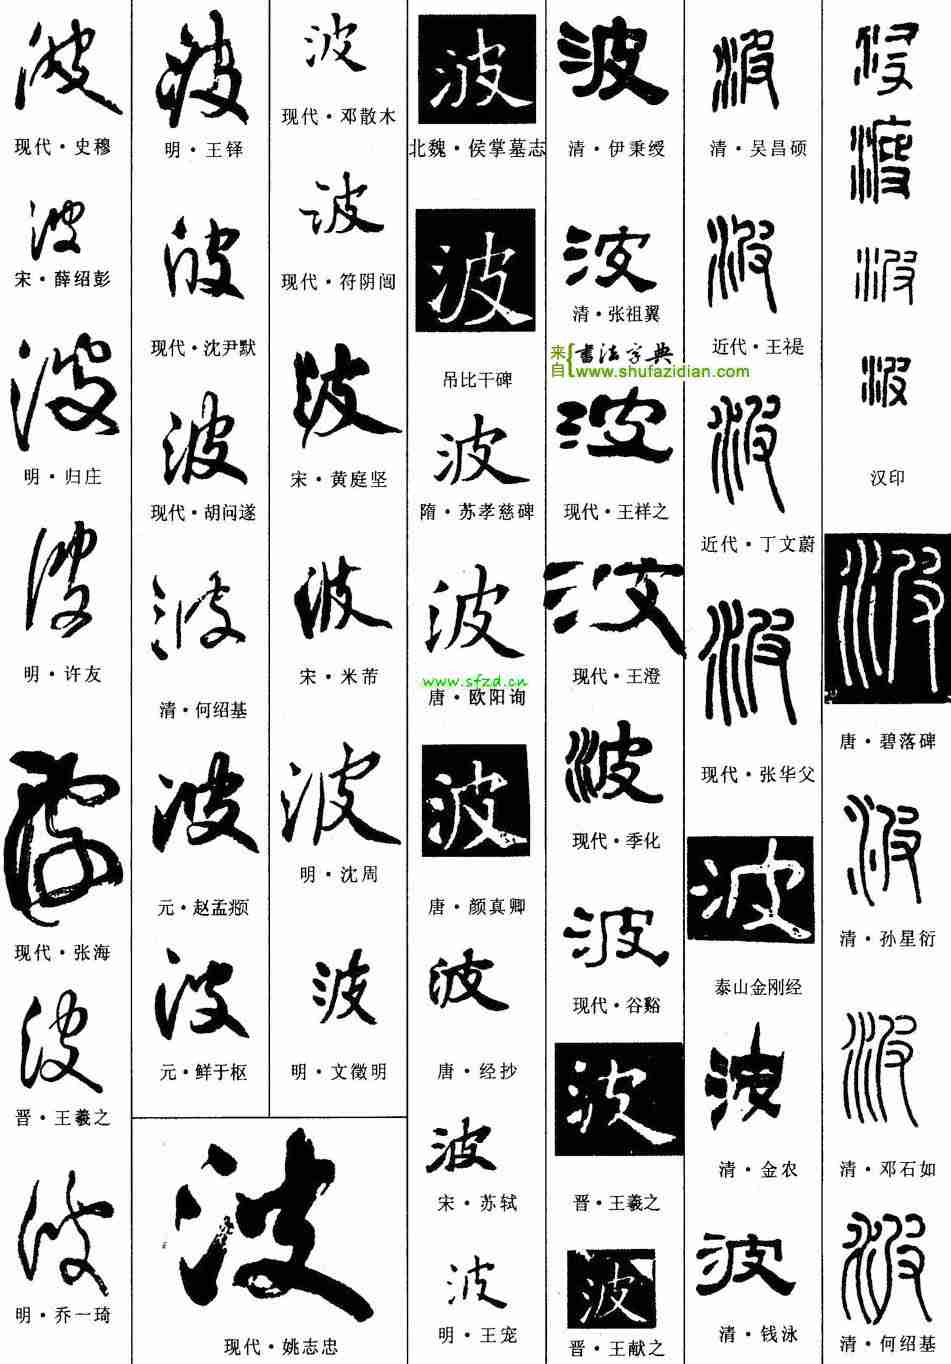 波
现代·史穆
波
宋·薛绍彭
波
明·归庄
波
明·许友
波
现代·张海
波
晋·王羲之
波
明·乔一琦
波
明·王铎
波
现代·沈尹默
波
现代·胡问遂
波
清·何绍基
波
元·赵孟頫
波
元·鲜于枢
波
现代·邓散木
波
现代·符阴闿
波
宋·黄庭坚
波
宋·米芾
波
明·沈周
波
明·文徵明
波
现代·姚志忠
波
北魏·侯掌墓志
波
吊比干碑
波
隋·苏孝慈碑
波
www.sfzd.cn
唐·欧阳询
波
唐·颜真卿
波
唐·经抄
波
宋·苏轼
波
明·王宠
波
清·伊秉绶
波
清·张祖翼
来自{书法字典
www.shufazidian.com
波
现代·王祥之
波
现代·王澄
波
现代·季化
波
现代·谷谿
波
晋·王羲之
波
晋·王献之
波
清·吴昌硕
波
近代·王禔
波
近代·丁文蔚
波
现代·张华父
波
泰山金刚经
波
清·金农
波
清·钱泳
波
波
波
波
汉印
波
唐·碧落碑
波
清·孙星衍
波
清·邓石如
波
清·何绍基